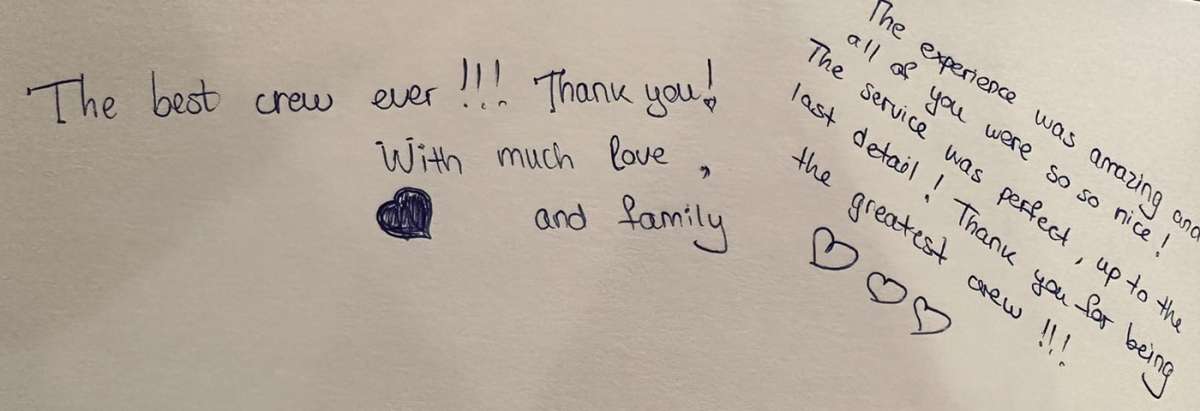 The best crew ever!!! Thank you!
With much love,
and family
The experience was amazing and
all of you were so so nice!
The service was perfect, up to the
last detail! Thank you for being
the greatest crew!!!